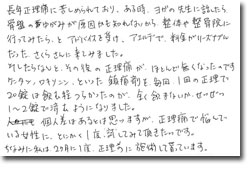 長年生理痛に苦しめられており、ある時、ヨガの先生に話したら
骨盤のゆがみが原因かも知れないから 整体や整骨院に
行ってみたら、とアドバイスを受け、アスカラで、料金がリーズナブル
だった、さくらさんに来ました。
そしたらなんと、その後の正理痛が、ほとんど無くなったのです。
ケンタン、ロキソニン、といった鎮痛剤を、毎回1回の正理で
20錠は飲む程つらかったのが、全く飲まないか、せいぜい
1〜2錠で済むようになりました。
個人差はあると思いますが、正理痛で悩んで
いる女性に、とにかく1度、試してみて頂きたいです。
ちなみに私は、2ヶ月に1度、正理前に施術して貰ています。